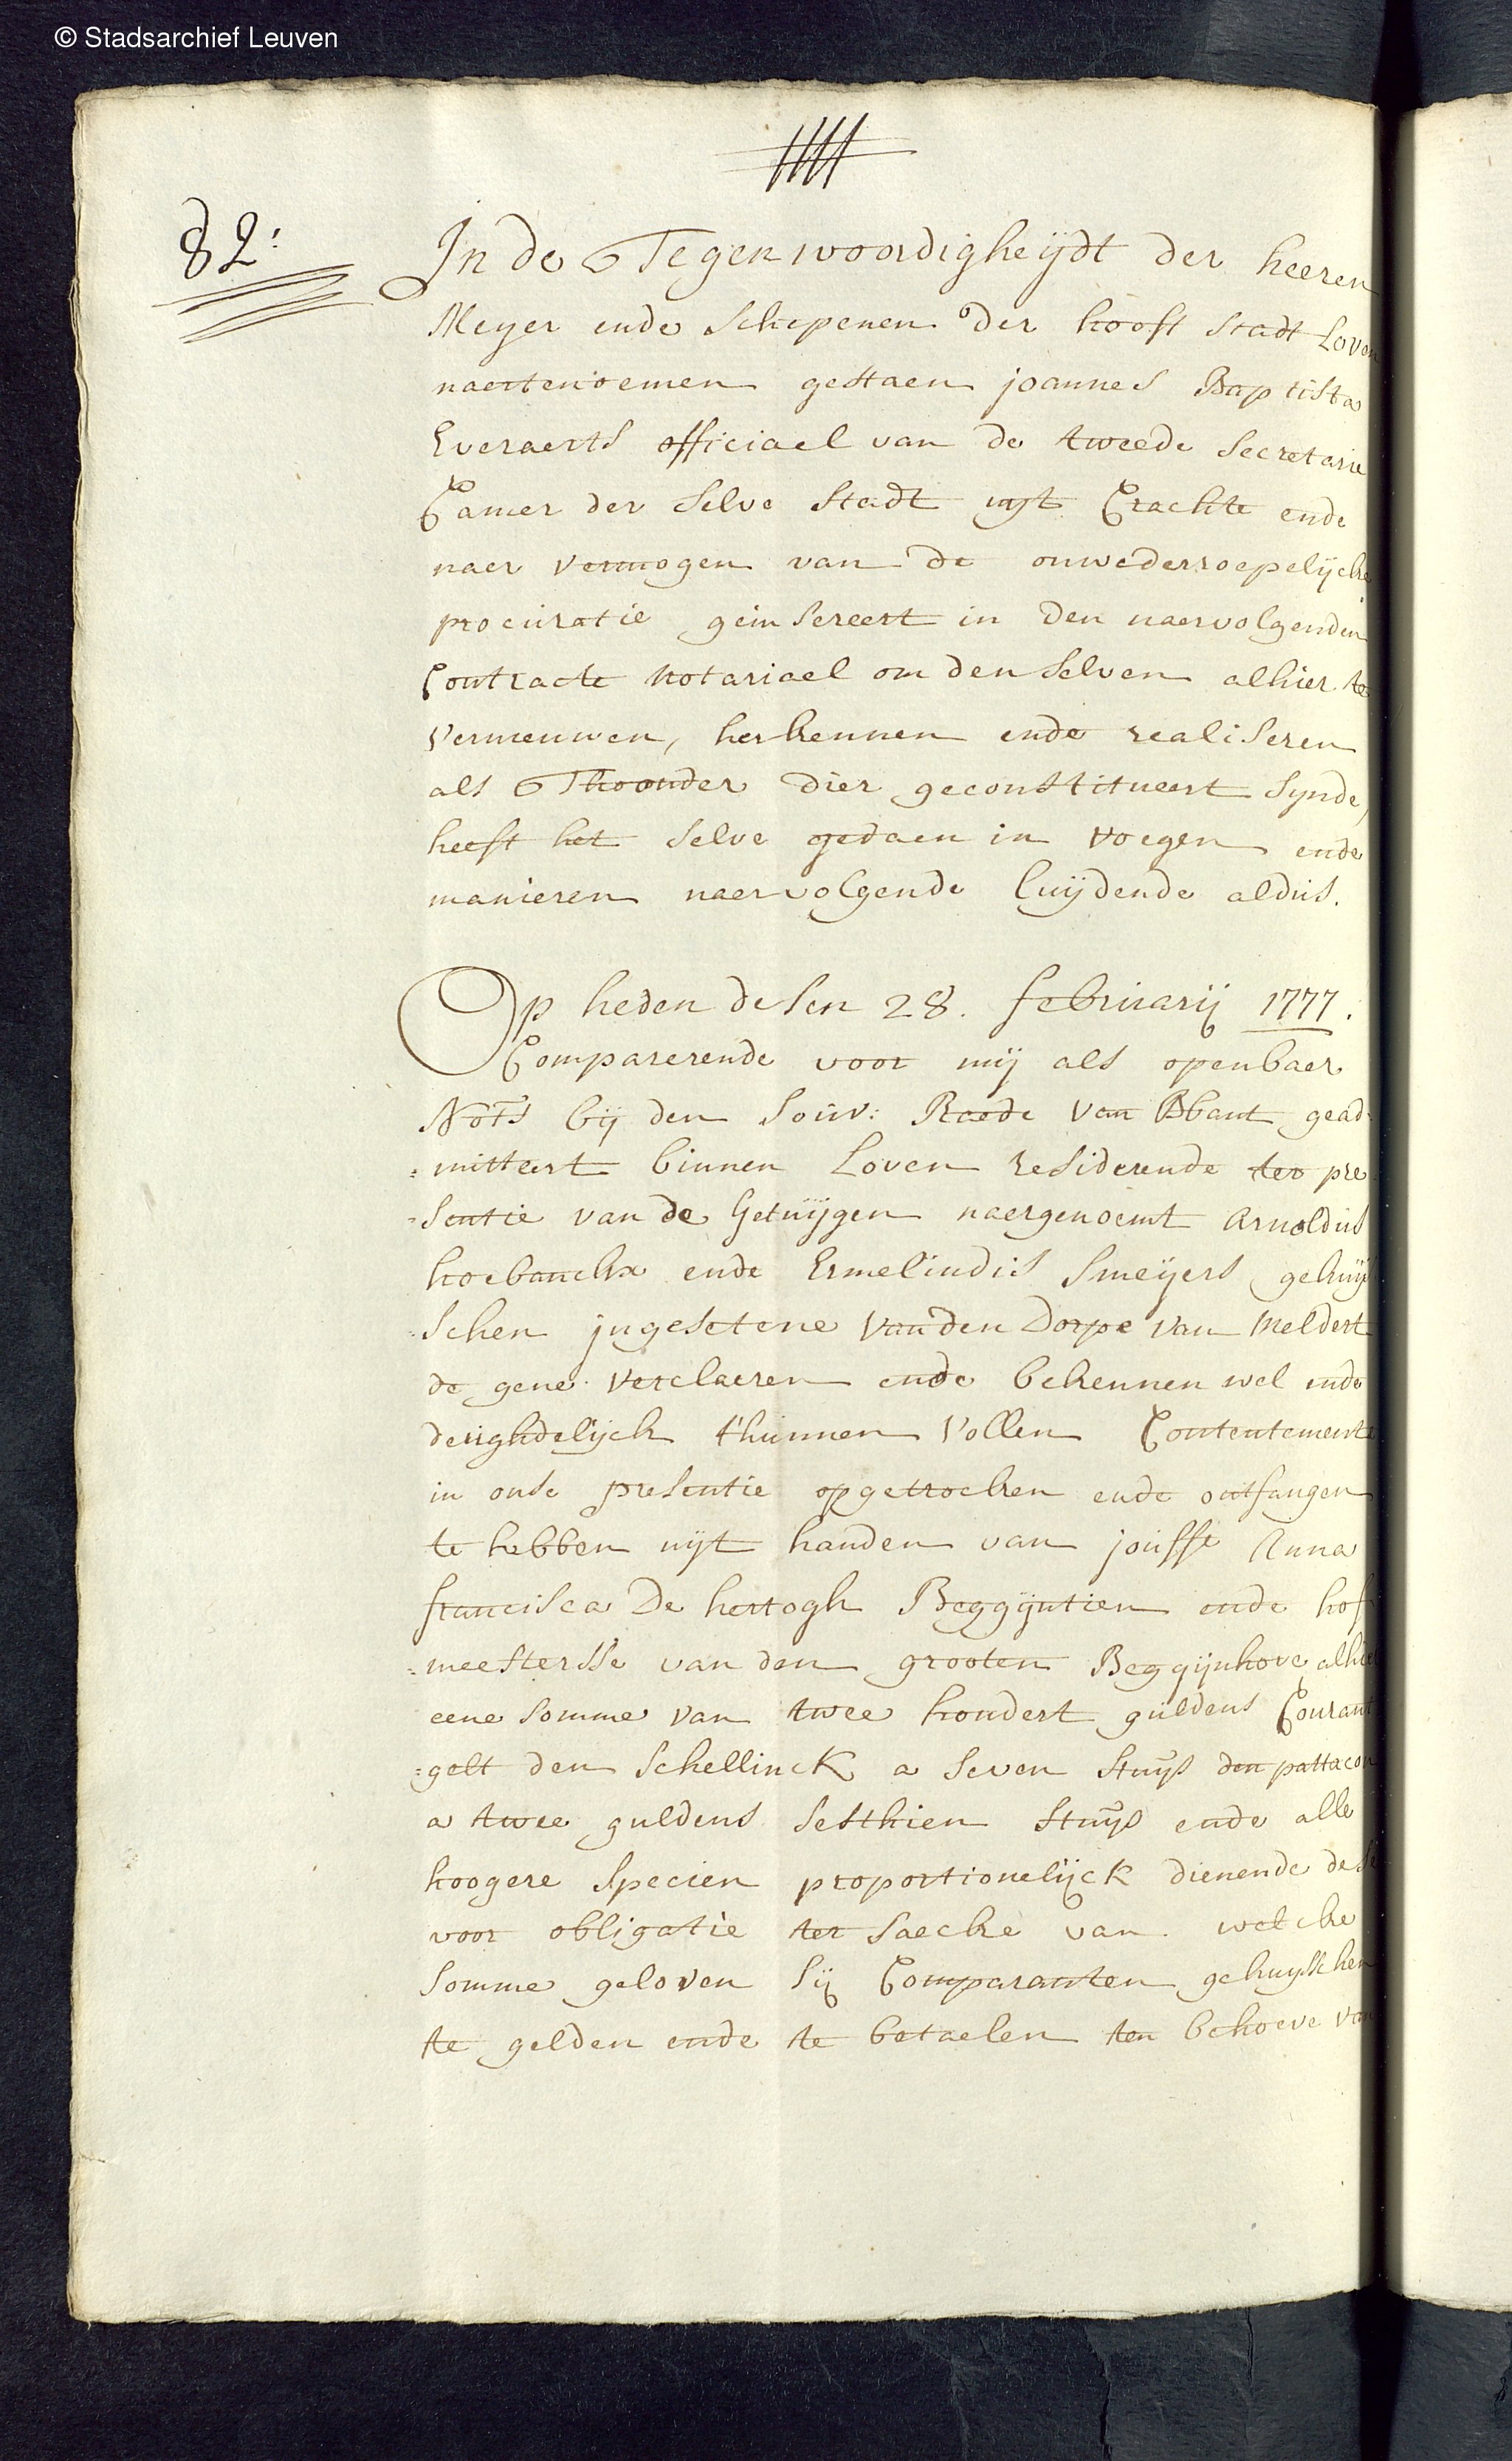 © Stadsarchief Leuven
82:
In de Tegenwoordigheijdt der heeren
Meyer ende Schepenen der hooft Stadt Loven
naertenoemen gestaen joannes Baptista
Everaerts officiael van de tweede Secretarie
Camer der Selve Stadt uyt Crachte ende
naer vermogen van de onwederroepelijcke
procuratie geinsereert in den naervolgenden
Contracte Notariael om den Selven alhier te
vernieuwen, herkennen ende realiseren
als Thoonder dier geconstitueert Synde,
heeft het Selve gedaen in voegen ende
manieren naervolgende luijdende aldus.
Op heden desen 28. februarij 1777.
Comparerende voor mij als openbaer
Nots bij den Souv: Raede van Bbant gead-
=mitteert binnen Loven residerende ter pre
=sentie van de getuijgen naergenoemt Arnoldus
hoebanckx ende Ermelindis Smeijers gehuij
=schen jngesetene van den Dorpe van Meldert
de gene verclaeren ende bekennen wel ende
deughdelijck t'hunnen vollen Contentemente
in onse presentie opgetrocken ende ontfangen
te hebben uijt handen van jouffe Anna
francisca De hertogh Beggijntien ende hof
=meestersse van den grooten Beggijnhove alhier
eene somme van twee hondert guldens Courant
=gelt den Schellinck a seven stuijs den pattacon
a twee guldens sesthien stuijs ende alle
hoogere specien proportionelijck dienende dese
voor obligatie ter saecke van welcke
somme geloven sij Comparanten gehuysschen
te gelden ende te betaelen ten behoeve van